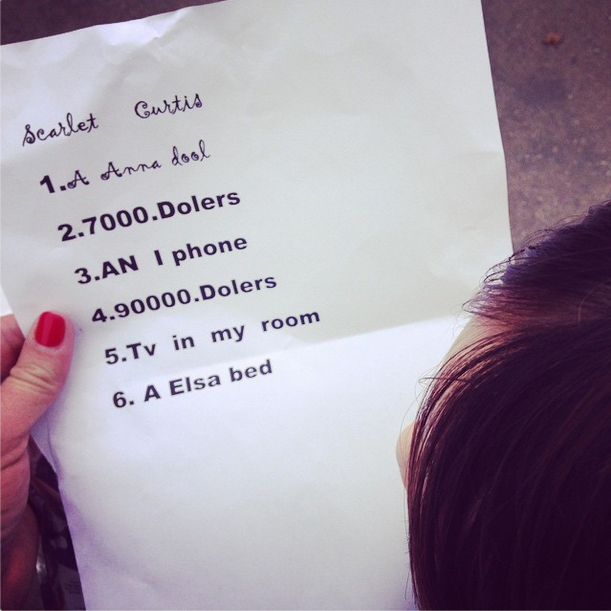 Scarlet Curtis
1.A Anna dool
2.7000.Dolers
3.AN I phone
4.90000.Dolers
5.Tv in my room
6. A Elsa bed